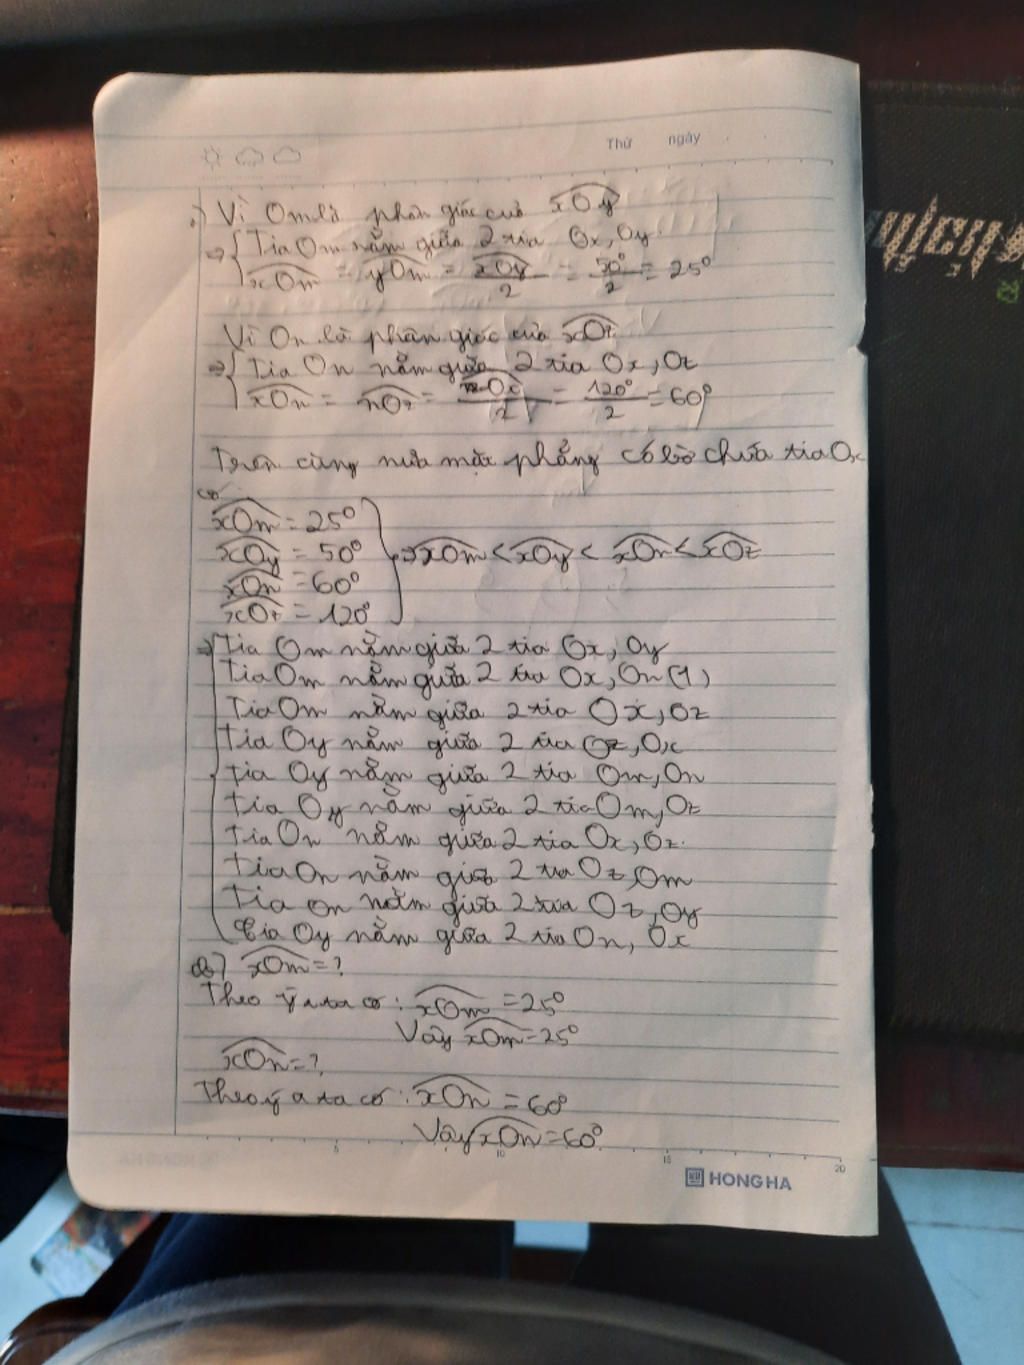 Thứ ngày
Vì Om là phân giác của xOy
=> { Tia Om nằm giữa 2 tia Ox, Oy.
xOm = yOm = xOy/2 = 50°/2 = 25°
Vì On là phân giác của xOz
=> { Tia On nằm giữa 2 tia Ox, Oz
xOn = nOz = zOx/2 = 120°/2 = 60°
Trên cùng nửa mặt phẳng có bờ chứa tia Ox
có
xOm = 25°
xOy = 50° => xOm < xOy < xOn < xOz
xOn = 60°
xOz = 120°
=> Tia Om nằm giữa 2 tia Ox, Oy
Tia Om nằm giữa 2 tia Ox, On (1)
Tia Om nằm giữa 2 tia Ox, Oz
Tia Oy nằm giữa 2 tia Oz, Ox
Tia Oy nằm giữa 2 tia Om, On
Tia Oy nằm giữa 2 tia Om, Oz
Tia On nằm giữa 2 tia Ox, Oz.
Tia On nằm giữa 2 tia Oz, Om
Tia On nằm giữa 2 tia Oz, Oy
Tia Oy nằm giữa 2 tia On, Ox
b) xOm = ?
Theo ý a ta có: xOm = 25°
Vậy xOm = 25°
xOn = ?
Theo ý a ta có: xOn = 60°
Vậy xOn = 60°
5 10 15 20
HONG HA